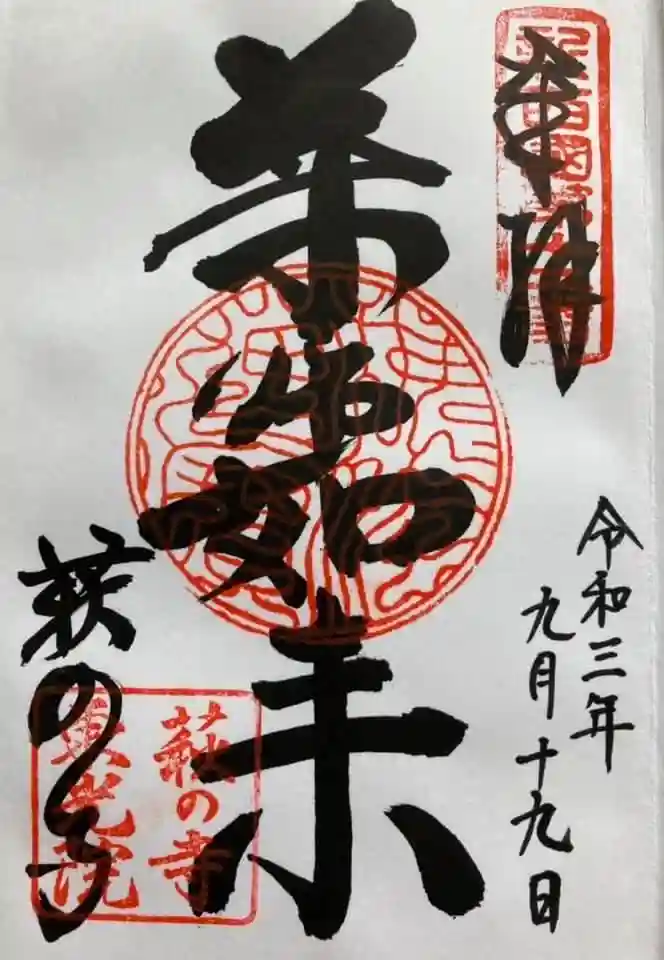 奉拝
令和三年
九月十九日
薬師如来
萩の寺
萩の寺
東光院